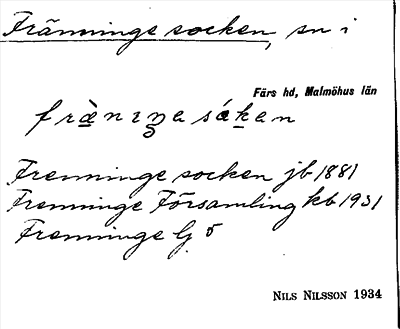 Främninge socken, sn i
Färs hd, Malmöhus län
Fremminge socken jb 1881
Fremminge Församling kb 1931
Fremminge Gj 5
NILS NILSSON 1934